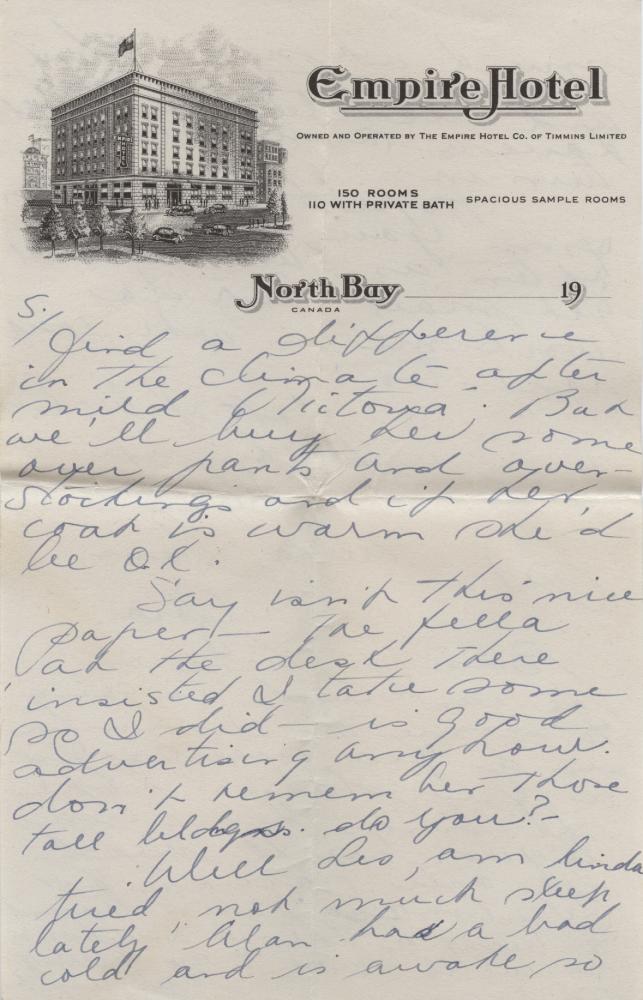 Empire Hotel
OWNED AND OPERATED BY THE EMPIRE HOTEL CO. OF TIMMINS LIMITED
150 ROOMS
110 WITH PRIVATE BATH
SPACIOUS SAMPLE ROOMS
North Bay 19
CANADA
5/
find a difference
in the climate after
mild Victoria. But
we'll buy her some
over pants and over-
stockings and if her
coat is warm she'd
be O.K.
Say isn't this nice
paper — The fella
at the desk there
insisted I take some
so I did — is good
advertising anyhow.
don't remember those
tall bldgs. do you? —
Well Les, am kinda
tired, not much sleep
lately. Alan has a bad
cold and is awake so